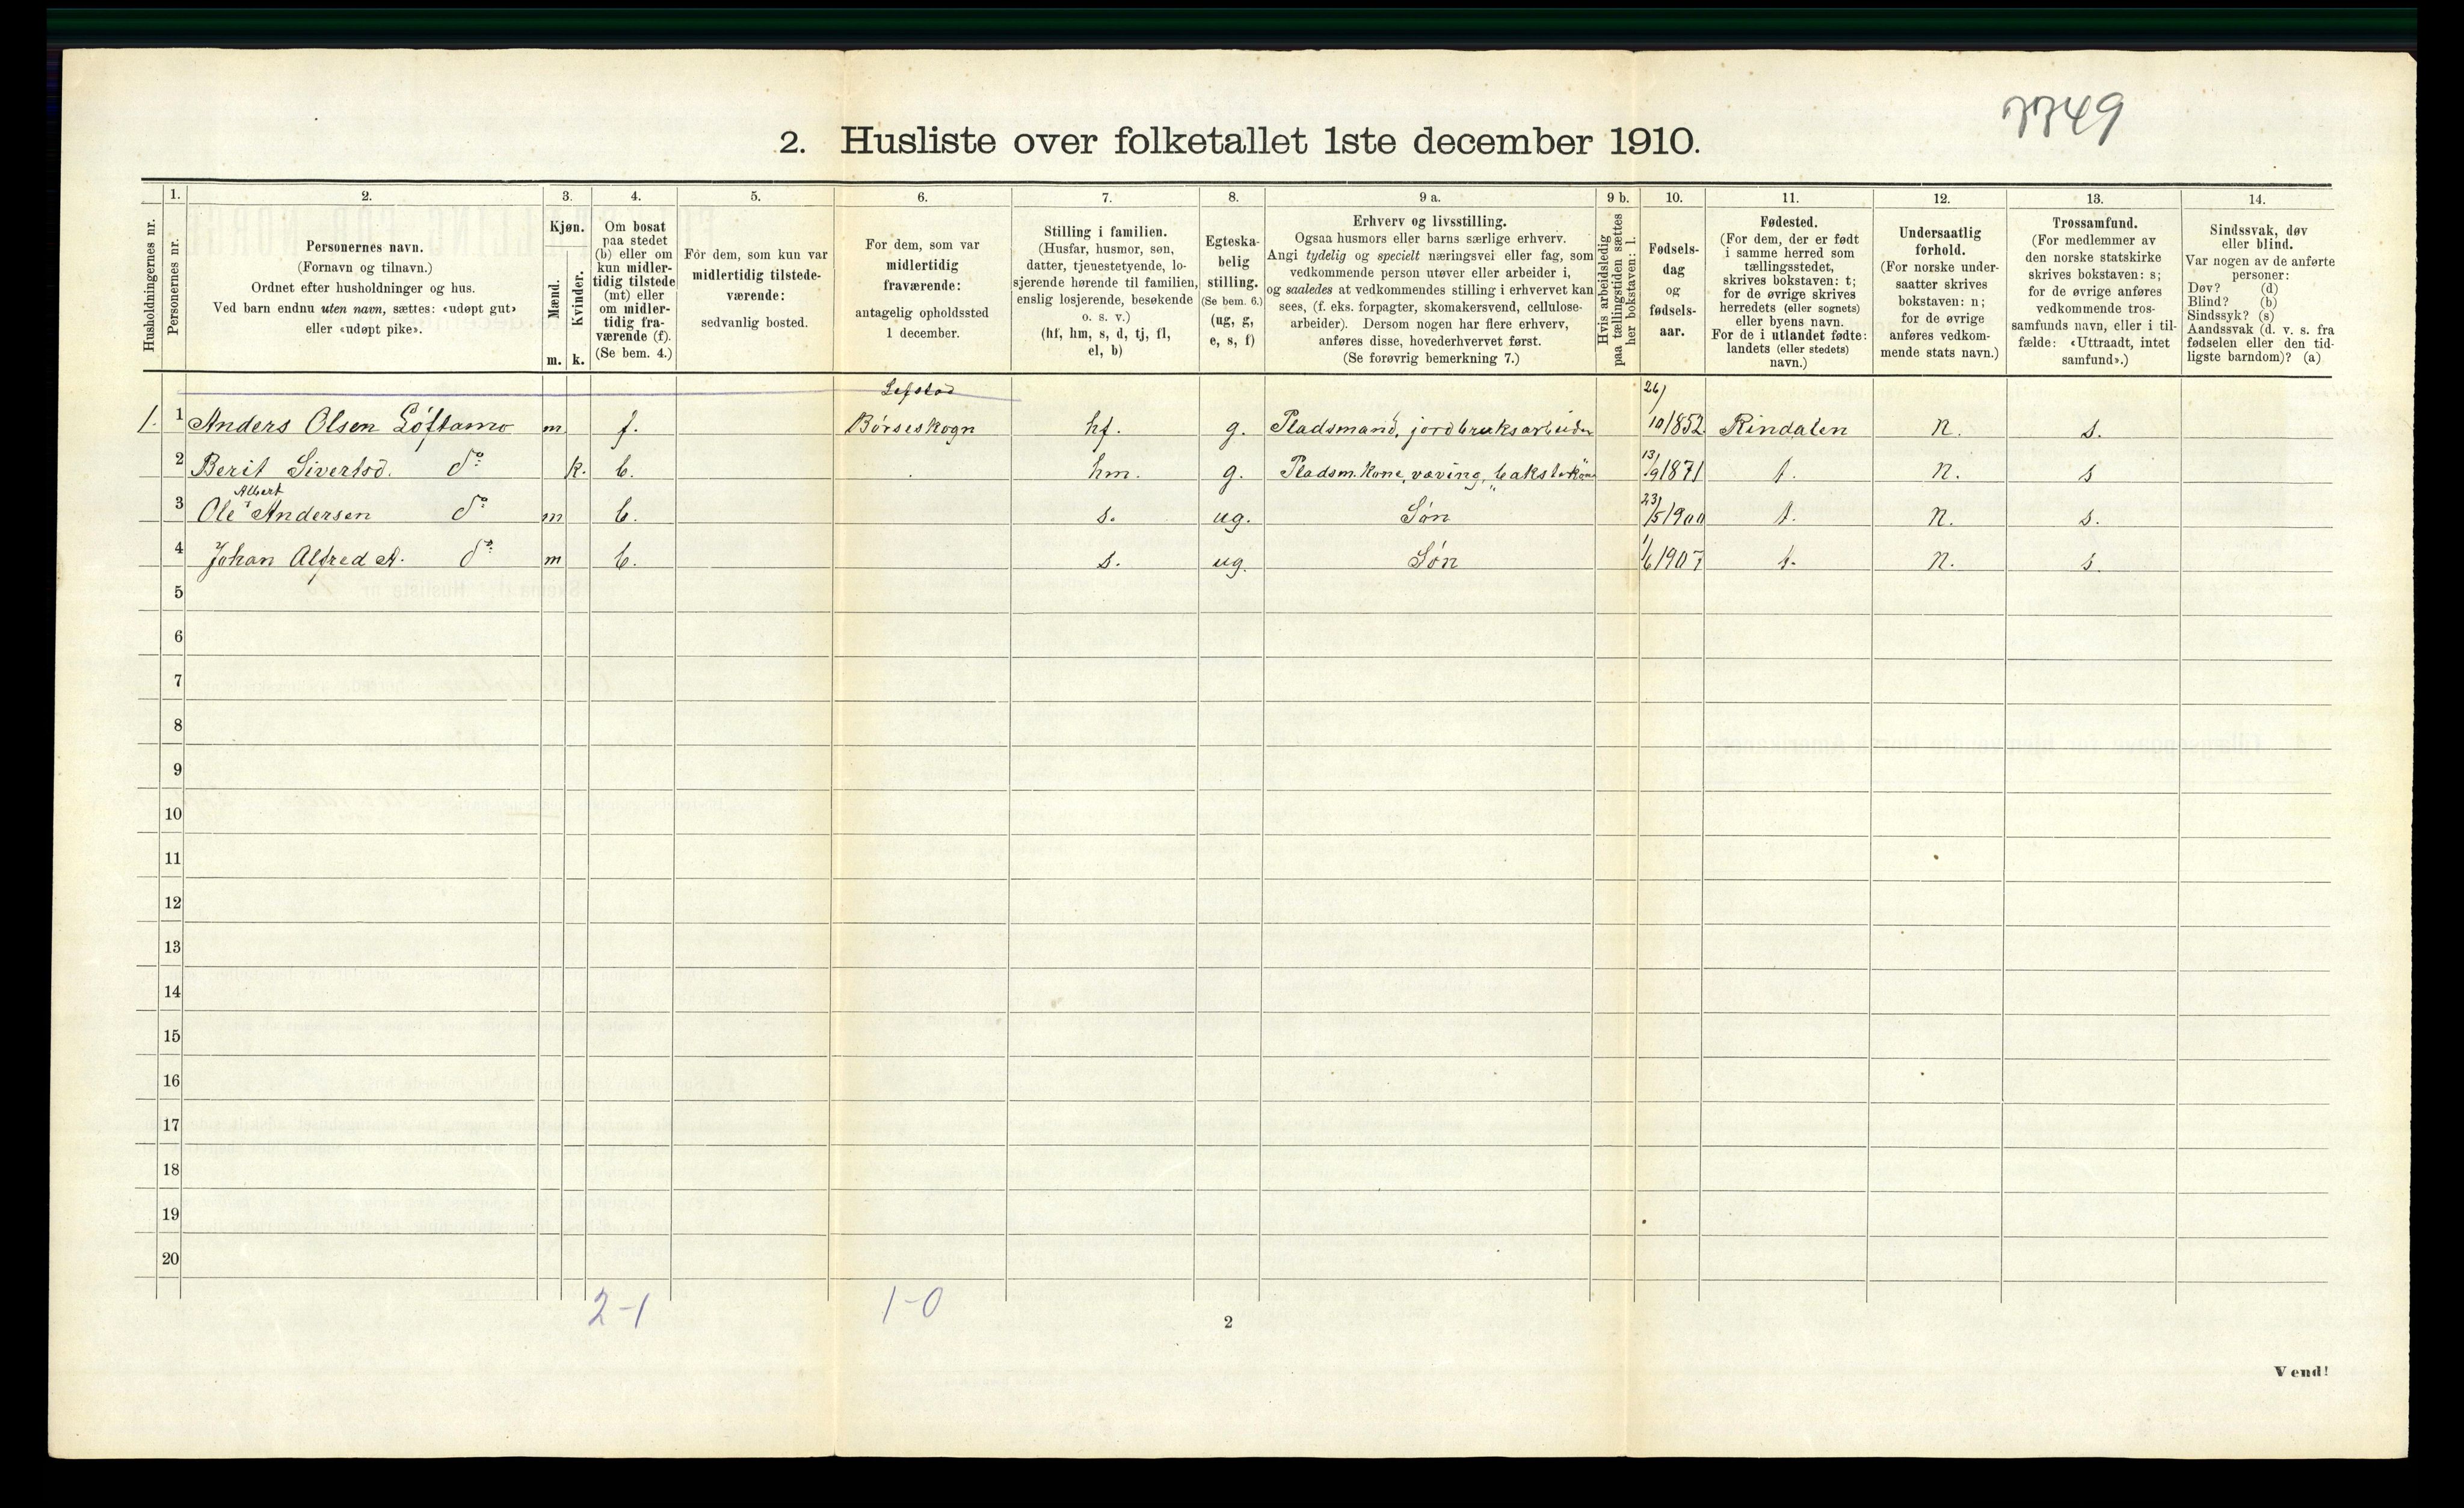 7749
2. Husliste over folketallet 1ste december 1910.
Husholdningernes nr.
1. Personernes nr.
2. Personernes navn. (Fornavn og tilnavn.) Ordnet efter husholdninger og hus. Ved barn endnu uten navn, sættes: «udøpt gut» eller «udøpt pike».
3. Kjøn. Mænd. m. Kvinder. k.
4. Om bosat paa stedet (b) eller om kun midlertidig tilstede (mt) eller om midlertidig fraværende (f). (Se bem. 4.)
5. For dem, som kun var midlertidig tilstedeværende: sedvanlig bosted.
6. For dem, som var midlertidig fraværende: antagelig opholdssted 1 december.
7. Stilling i familien. (Husfar, husmor, søn, datter, tjenestetyende, losjerende hørende til familien, enslig losjerende, besøkende o. s. v.) (hf, hm, s, d, tj, fl, el, b)
8. Egteskabelig stilling. (Se bem. 6.) (ug, g, e, s, f)
9 a. Erhverv og livsstilling. Ogsaa husmors eller barns særlige erhverv. Angi tydelig og specielt næringsvei eller fag, som vedkommende person utøver eller arbeider i, og saaledes at vedkommendes stilling i erhvervet kan sees, (f. eks. forpagter, skomakersvend, cellulosearbeider). Dersom nogen har flere erhverv, anføres disse, hovederhvervet først. (Se forøvrig bemerkning 7.)
9 b. Hvis arbeidsledig paa tællingstiden sættes her bokstaven: l.
10. Fødselsdag og fødselsaar.
11. Fødested. (For dem, der er født i samme herred som tællingsstedet, skrives bokstaven: t; for de øvrige skrives herredets (eller sognets) eller byens navn. For de i utlandet fødte: landets (eller stedets) navn.)
12. Undersaatlig forhold. (For norske undersaatter skrives bokstaven: n; for de øvrige anføres vedkommende stats navn.)
13. Trossamfund. (For medlemmer av den norske statskirke skrives bokstaven: s; for de øvrige anføres vedkommende trossamfunds navn, eller i tilfælde: «Uttraadt, intet samfund».)
14. Sindssvak, døv eller blind. Var nogen av de anførte personer: Døv? (d) Blind? (b) Sindssyk? (s) Aandssvak (d. v. s. fra fødselen eller den tidligste barndom)? (a)
1. 1 Anders Olsen Løftamo m f. Børseskogn hf. g. Pladsmand, jordbruksarbeider 26/10 1852 Rindalen n. s.
2 Berit Sivertsd. do k. b. hm. g. Pladsm. kone, væving, 13/9 1871 t. n. s
3 Ole Albert Andersen do m b. s. ug. Søn 23/5 1900 t. n. s.
4 Johan Alfred A. do m b. s. ug. Søn 1/6 1907 t. n. s.
5
6
7
8
9
10
11
12
13
14
15
16
17
18
19
20
2-1 1-0
2
Vend!